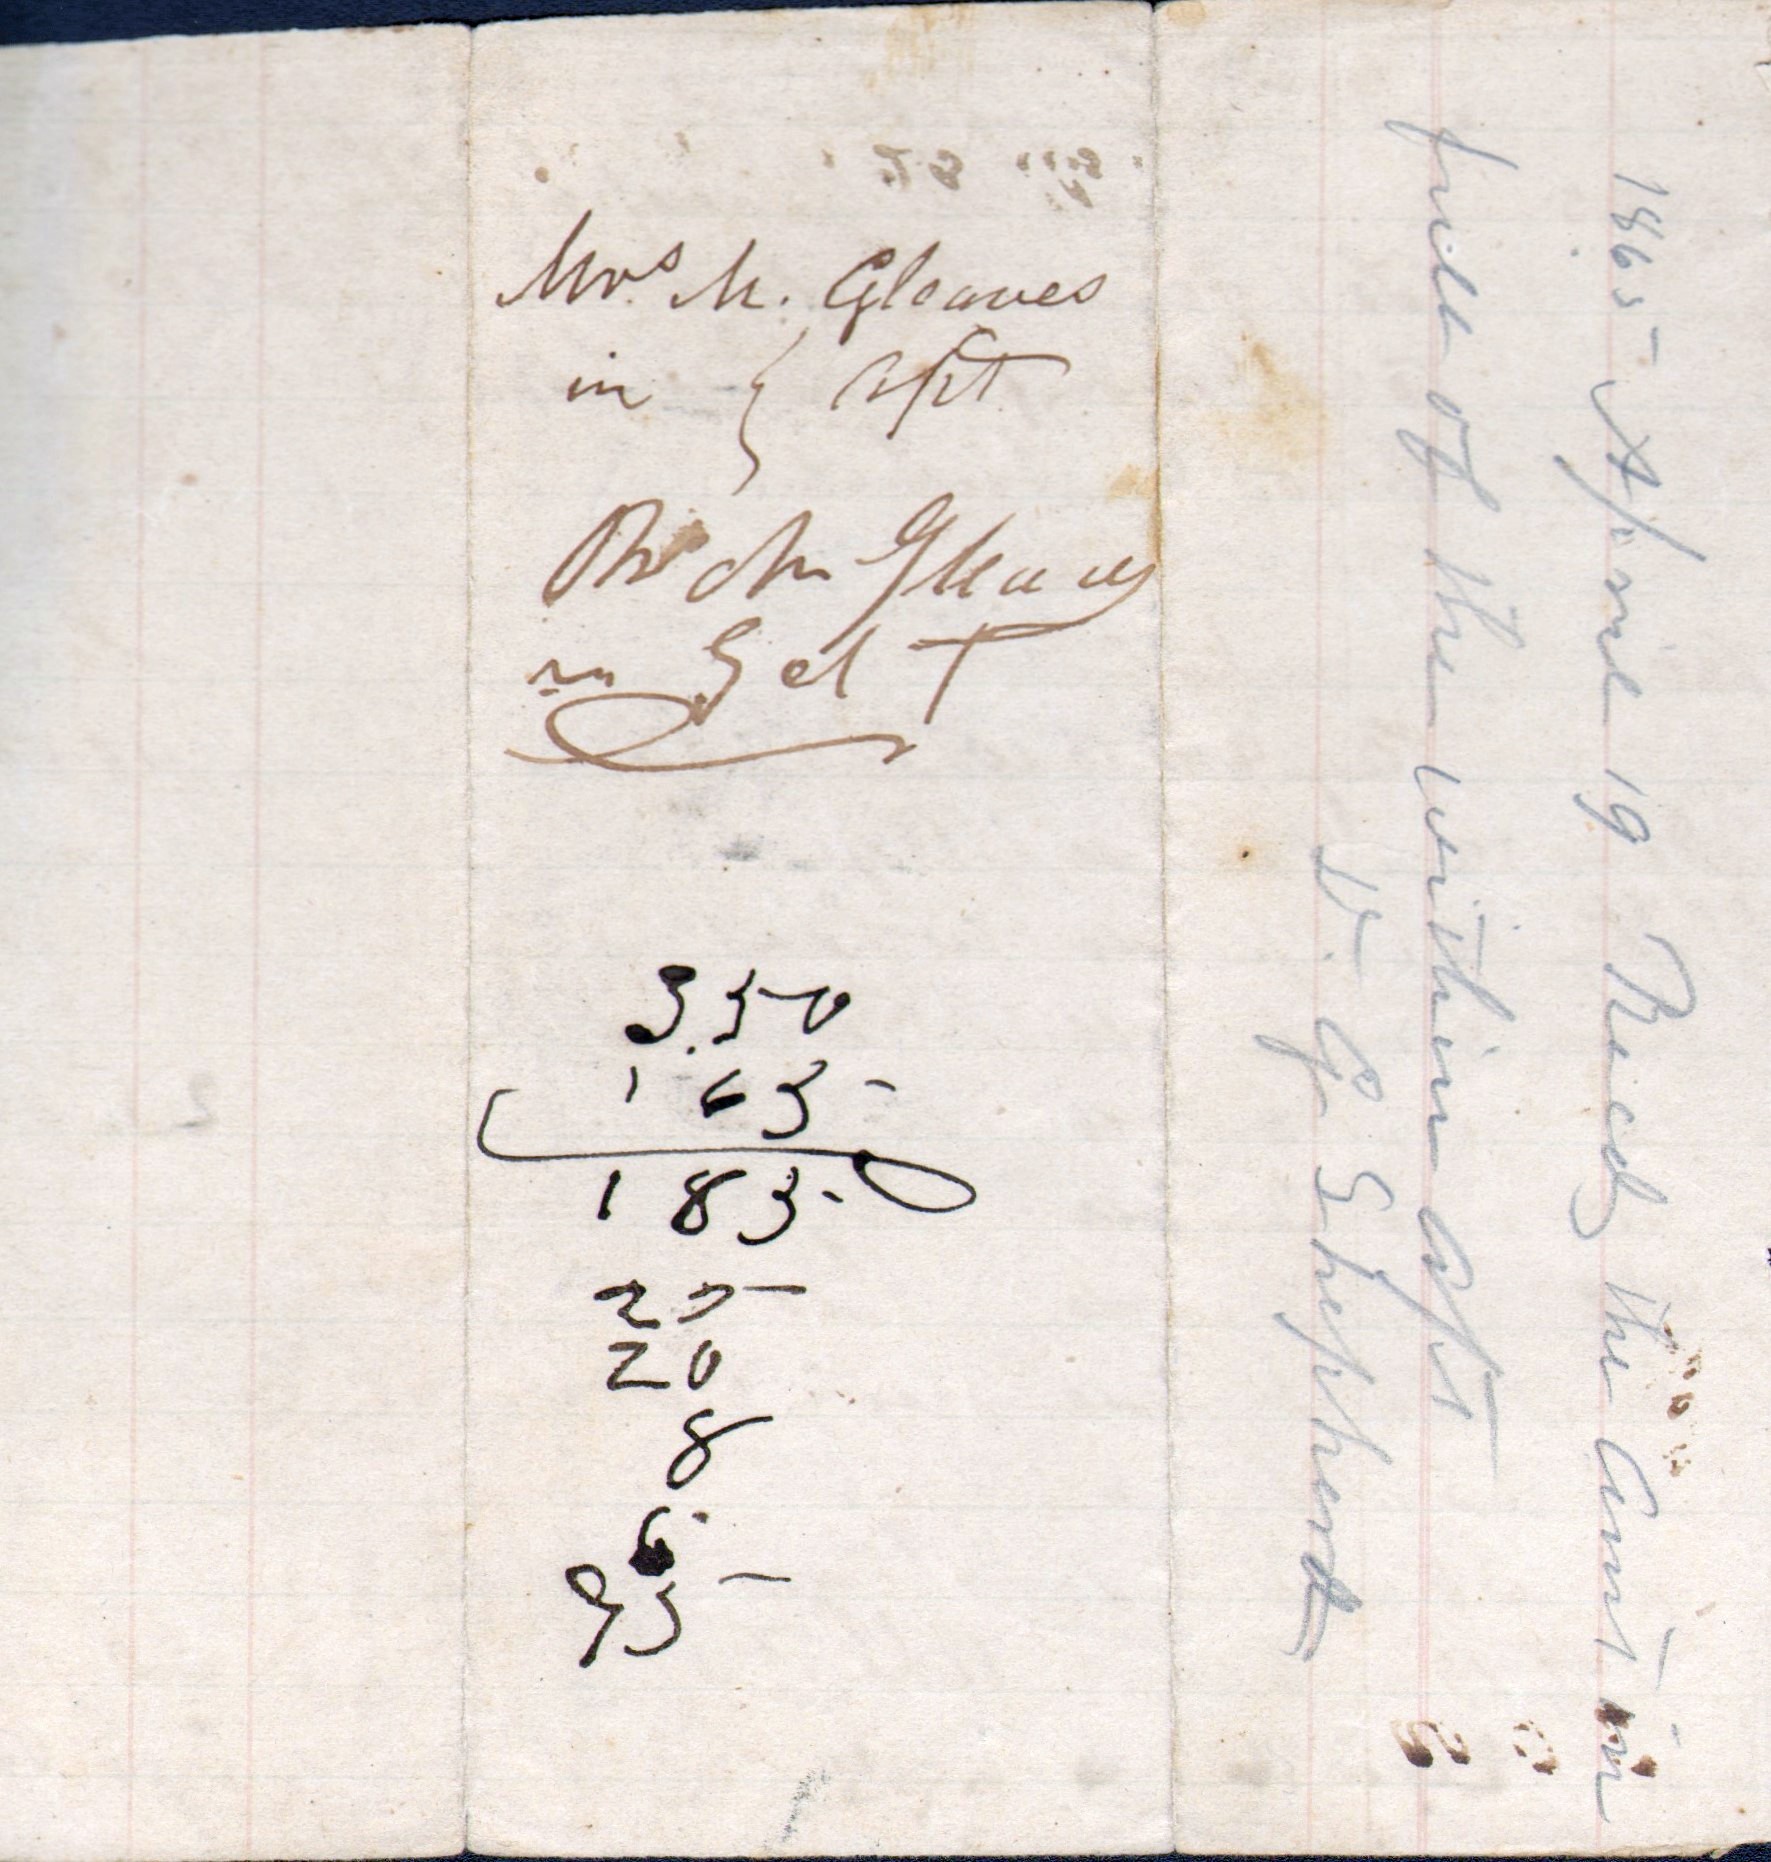 Mrs M. Gleaves
in } acpt
M Gleaves
in
350
165
185
25
20
8
6
95
1865 April 19 Recd the Amt in
full of the within acpt
D. G. Shepherd